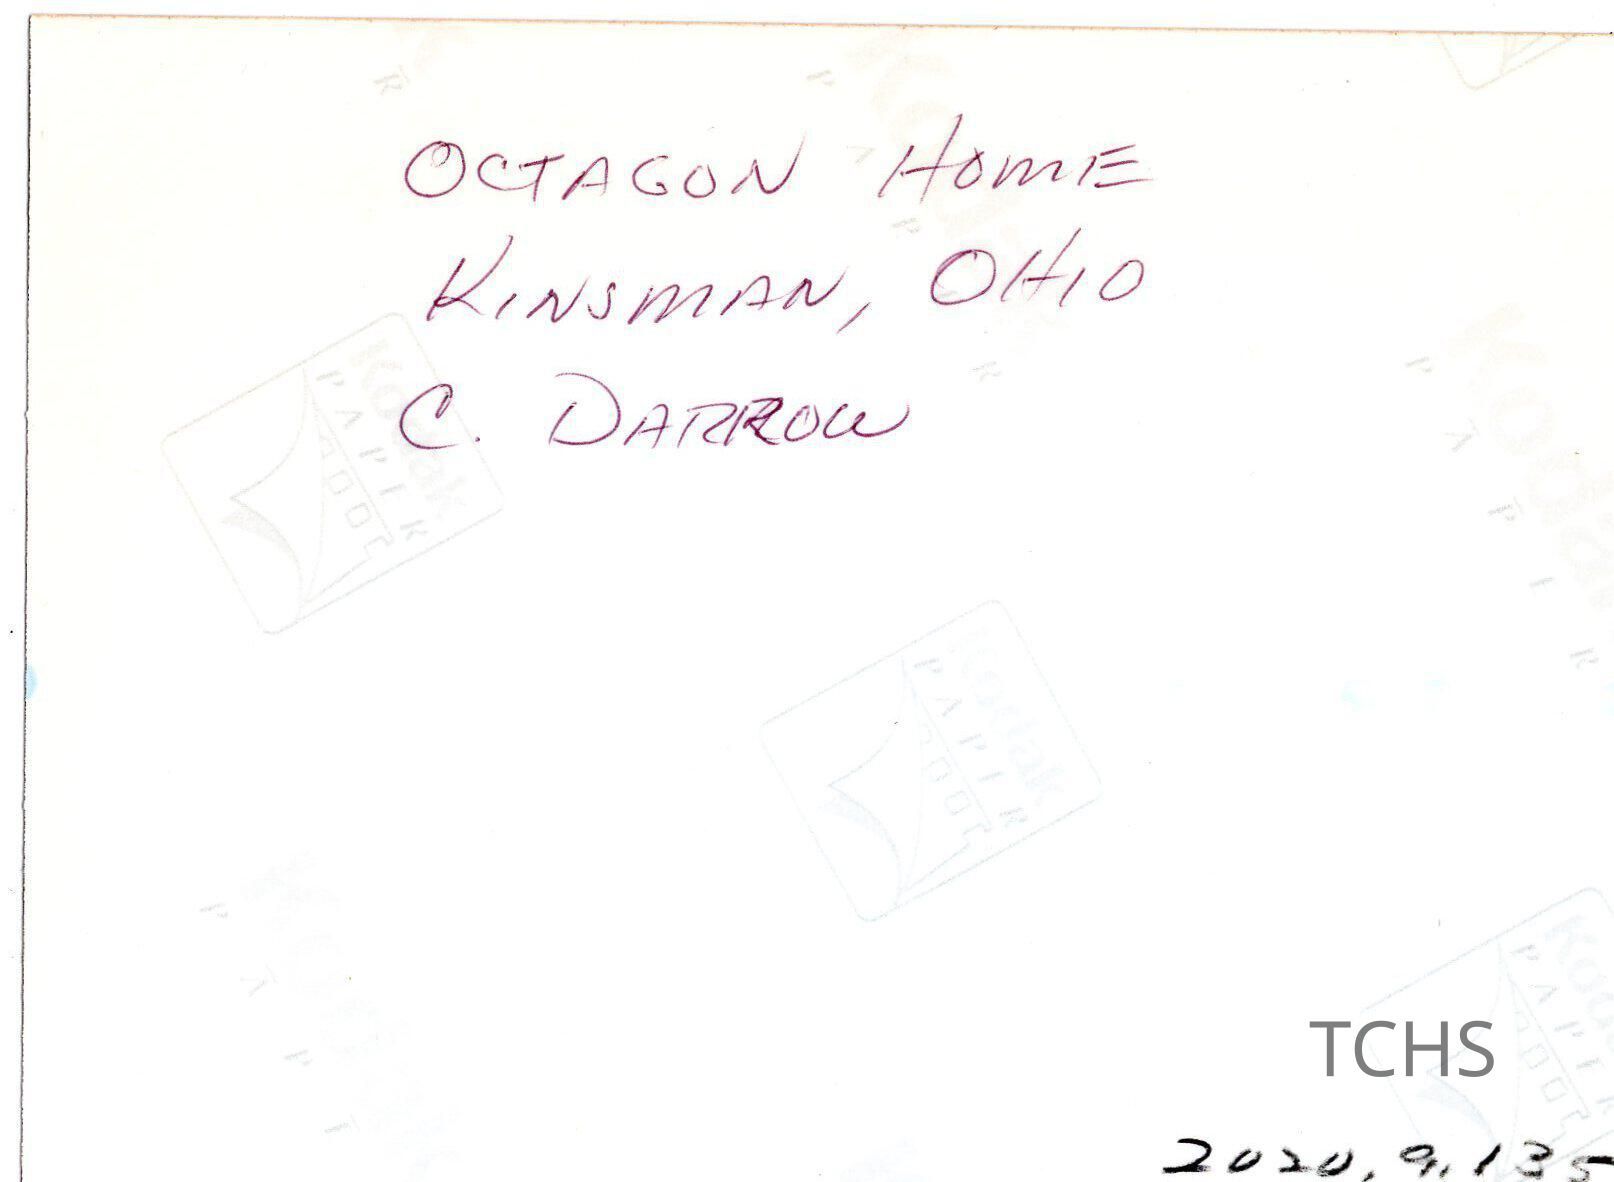 OCTAGON HOME
KINSMAN, OHIO
C. DARROW
Kodak
PAPIR
Kodak
PAPIR
TCHS
2020.9.135